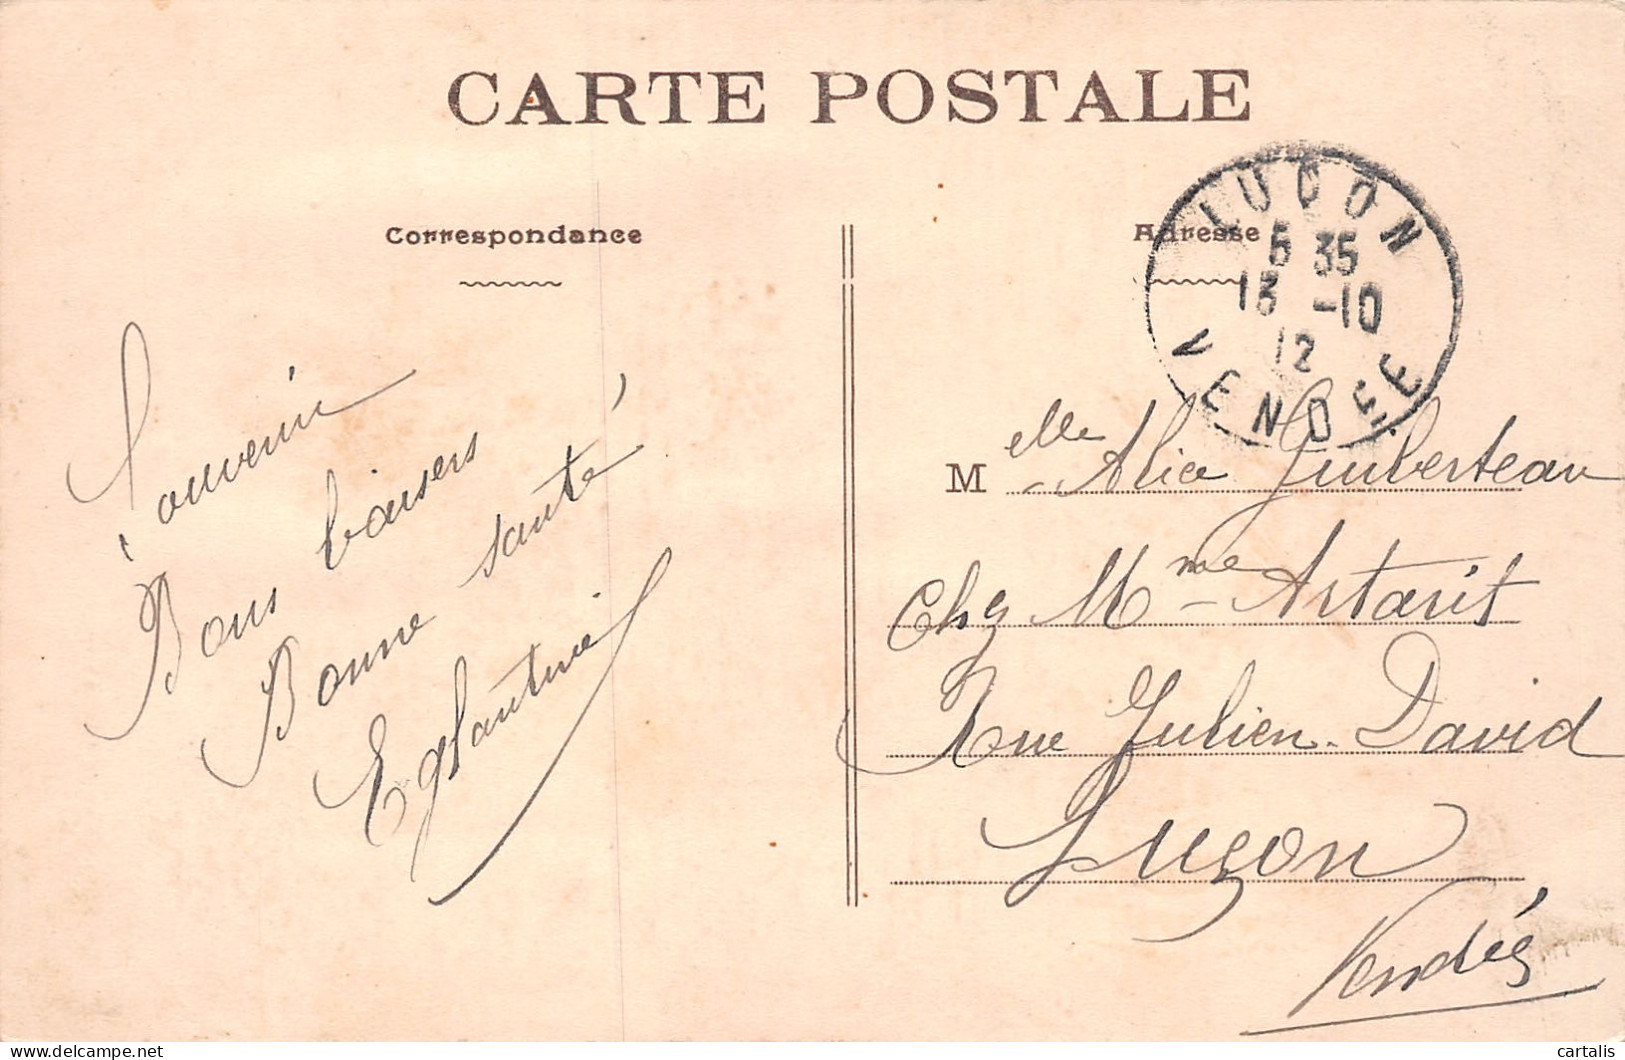 CARTE POSTALE
Correspondance
Souvenir
Bons baisers
Bonne santé
Eglantine
Adresse
LUÇON
5 35
13 -10
12
VENDÉE
Melle Alice Guiberteau
Chez Mme Artarit
Rue Julien David
Luçon
Vendée
cartalis
delcampe.net